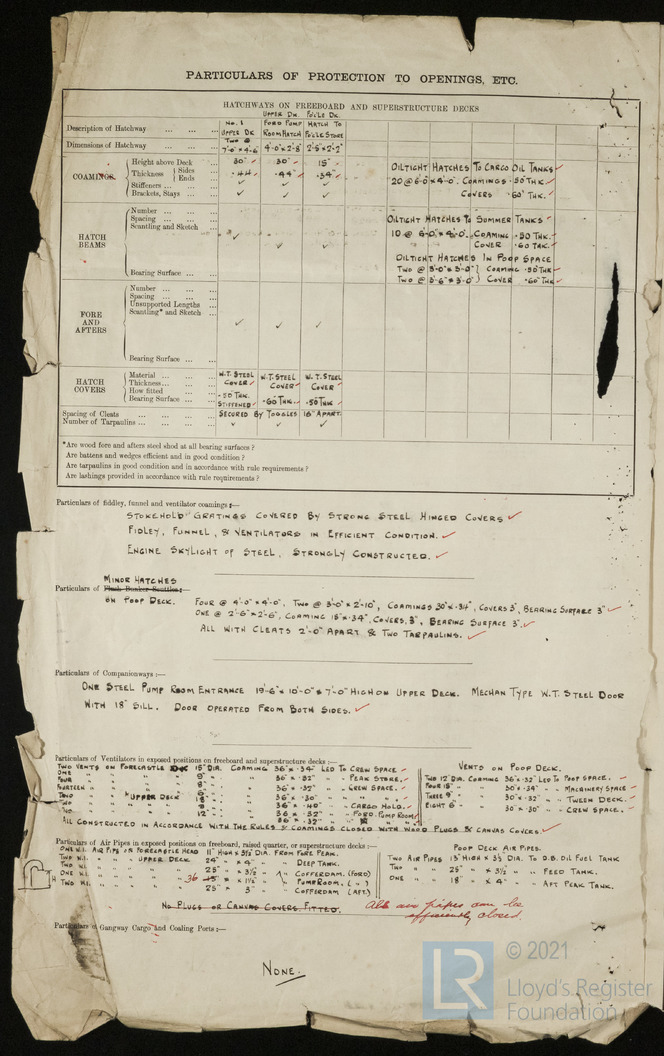 PARTICULARS OF PROTECTION TO OPENINGS, ETC.
HATCHWAYS ON FREEBOARD AND SUPERSTRUCTURE DECKS
Description of Hatchway ... ... ... No. 1 UPPER DK UPPER DK. FORD PUMP ROOM HATCH FO'CLE DK. HATCH TO FO'CLE STORE
Dimensions of Hatchway ... ... ... TWO @ 7'-0" x 4'-6" 4'-0" x 2'-8" 2'-5" x 2'-2"
COAMINGS
Height above Deck ... 30" 30" 15"
Thickness { Sides Ends .44 .44" .34"
Stiffeners ... ... ... ✓ ✓ ✓
Brackets, Stays ... ... ✓ ✓ ✓
OILTIGHT HATCHES TO CARGO OIL TANKS
20 @ 6'-0" x 4'-0". COAMINGS .50 THK.
COVERS .60" THK.
HATCH BEAMS
Number ... ... ...
Spacing ... ... ...
Scantling and Sketch ... ✓ ✓ ✓
Bearing Surface ... ...
OILTIGHT HATCHES TO SUMMER TANKS
10 @ 6'-0" x 4'-0". COAMING .50 THK.
COVER .60 THK.
OILTIGHT HATCHES IN POOP SPACE
TWO @ 5'-0" x 5'-0" } COAMING .50 THK
TWO @ 3'-6" x 3'-0" } COVER .60" THK
FORE AND AFTERS
Number ... ... ...
Spacing ... ... ...
Unsupported Lengths ...
Scantling* and Sketch ... ✓ ✓ ✓
Bearing Surface ... ...
HATCH COVERS
Material ... ... ... W.T. STEEL COVER W.T. STEEL COVER W.T. STEEL COVER
Thickness ... ... ...
How fitted ... ...
Bearing Surface ... ... .50 THK. STIFFENED .60 THK. .50 THK
Spacing of Cleats ... ... ... ... SECURED BY TOGGLES 16" APART.
Number of Tarpaulins ... ... ... ✓ ✓ ✓
*Are wood fore and afters steel shod at all bearing surfaces ?
Are battens and wedges efficient and in good condition ?
Are tarpaulins in good condition and in accordance with rule requirements ?
Are lashings provided in accordance with rule requirements ?
Particulars of fiddley, funnel and ventilator coamings :—
STOKEHOLD GRATINGS COVERED BY STRONG STEEL HINGED COVERS
FIDLEY, FUNNEL, & VENTILATORS IN EFFICIENT CONDITION.
ENGINE SKYLIGHT OF STEEL, STRONGLY CONSTRUCTED.
MINOR HATCHES
Particulars of Flush Bunker Scuttles :—
ON POOP DECK. FOUR @ 4'-0" x 4'-0", TWO @ 3'-0" x 2'-10", COAMINGS 30" x .34", COVERS 3", BEARING SURFACE 3"
ONE @ 2'-6" x 2'-6", COAMING 15" x .34", COVERS 3", BEARING SURFACE 3".
ALL WITH CLEATS 2'-0" APART & TWO TARPAULINS.
Particulars of Companionways :—
ONE STEEL PUMP ROOM ENTRANCE 19'-6" x 10'-0" x 7'-0" HIGH ON UPPER DECK. MECHAN TYPE W.T. STEEL DOOR
WITH 18" SILL. DOOR OPERATED FROM BOTH SIDES.
Particulars of Ventilators in exposed positions on freeboard and superstructure decks :—
TWO VENTS ON FORECASTLE DK 15" DIA. COAMING 36" x .34" LED TO CREW SPACE
ONE " " " " 9" " 36" x .32" " PEAK STORE.
FOUR " " " " 8" " 36" x .32" " CREW SPACE.
FOURTEEN " " " " 6" " 36" x .30" " " "
TWO " " UPPER DECK 18" " 36" x .40" " CARGO HOLD.
TWO " " " " 12" " 36" x .32" " FORD. PUMP ROOM
VENTS ON POOP DECK.
TWO 12" DIA. COAMING 36" x .32" LED TO POOP SPACE.
FOUR 18" " " 30" x .34" " MACHINERY SPACE
THREE 9" " " 30" x .32" " TWEEN DECK.
EIGHT 6" " " 30" x .30" " CREW SPACE.
ALL CONSTRUCTED IN ACCORDANCE WITH THE RULES & COAMINGS CLOSED WITH WOOD PLUGS & CANVAS COVERS.
Particulars of Air Pipes in exposed positions on freeboard, raised quarter, or superstructure decks :—
ONE W.I. AIR PIPE ON FORECASTLE HEAD 11" HIGH x 3½" DIA. FROM FORE PEAK.
TWO W.I. " " " UPPER DECK 24" " x 4" " " DEEP TANK.
ONE W.I. " " " " 25" " x 3½" " " COFFERDAM. (FORD)
TWO W.I. " " " " 36 15" " x 1½" " " PUMPROOM. ( " )
25" " x 3" " COFFERDAM (AFT.)
POOP DECK AIR PIPES.
TWO AIR PIPES 13" HIGH x 3½ DIA. TO D.B. OIL FUEL TANK
TWO " " 25" " x 3½" " " FEED TANK.
ONE " " 18" " x 4" " " AFT PEAK TANK.
NO PLUGS OR CANVAS COVERS FITTED.
All air pipes can be
efficiently closed.
Particulars of Gangway Cargo and Coaling Ports :—
NONE.
© 2021
LR
Lloyd's Register
Foundation